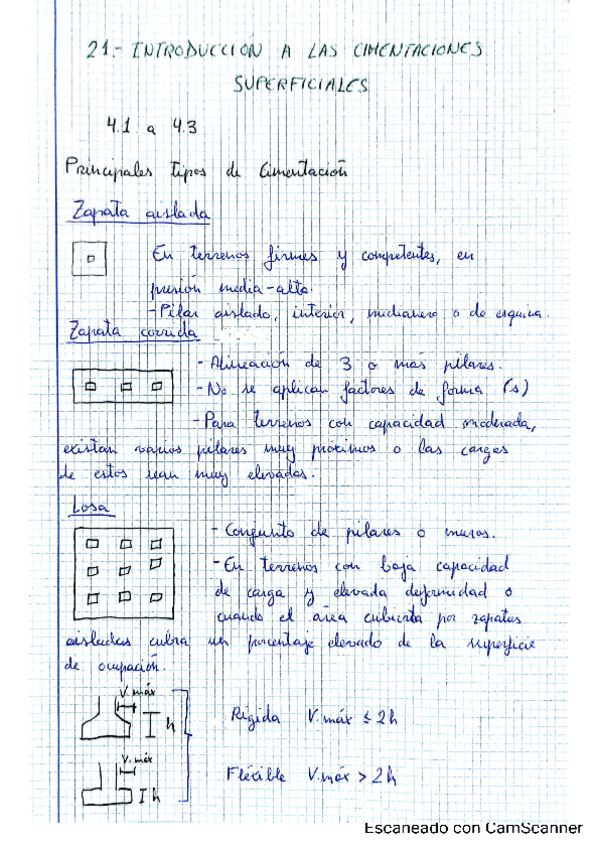 21.- INTRODUCCIÓN A LAS CIMENTACIONES
SUPERFICIALES
4.1 a 4.3
Principales tipos de Cimentación
Zapata aislada
En terrenos firmes y competentes, en
presión media-alta.
-Pilar aislado, interior, medianero o de esquina.
Zapata corrida
- Alineación de 3 o más pilares.
- No se aplican factores de forma (s)
- Para terrenos con capacidad moderada,
existan varios pilares muy próximos o las cargas
de estos sean muy elevadas.
Losa
- Conjunto de pilares o muros.
- En terrenos con baja capacidad
de carga y elevada deformidad o
cuando el área cubierta por zapatas
aisladas cubra un porcentaje elevado de la superficie
de ocupación.
V.máx
h
Rígida V.máx ≤ 2h
V.máx
h
Fléxible V.máx > 2h
Escaneado con CamScanner